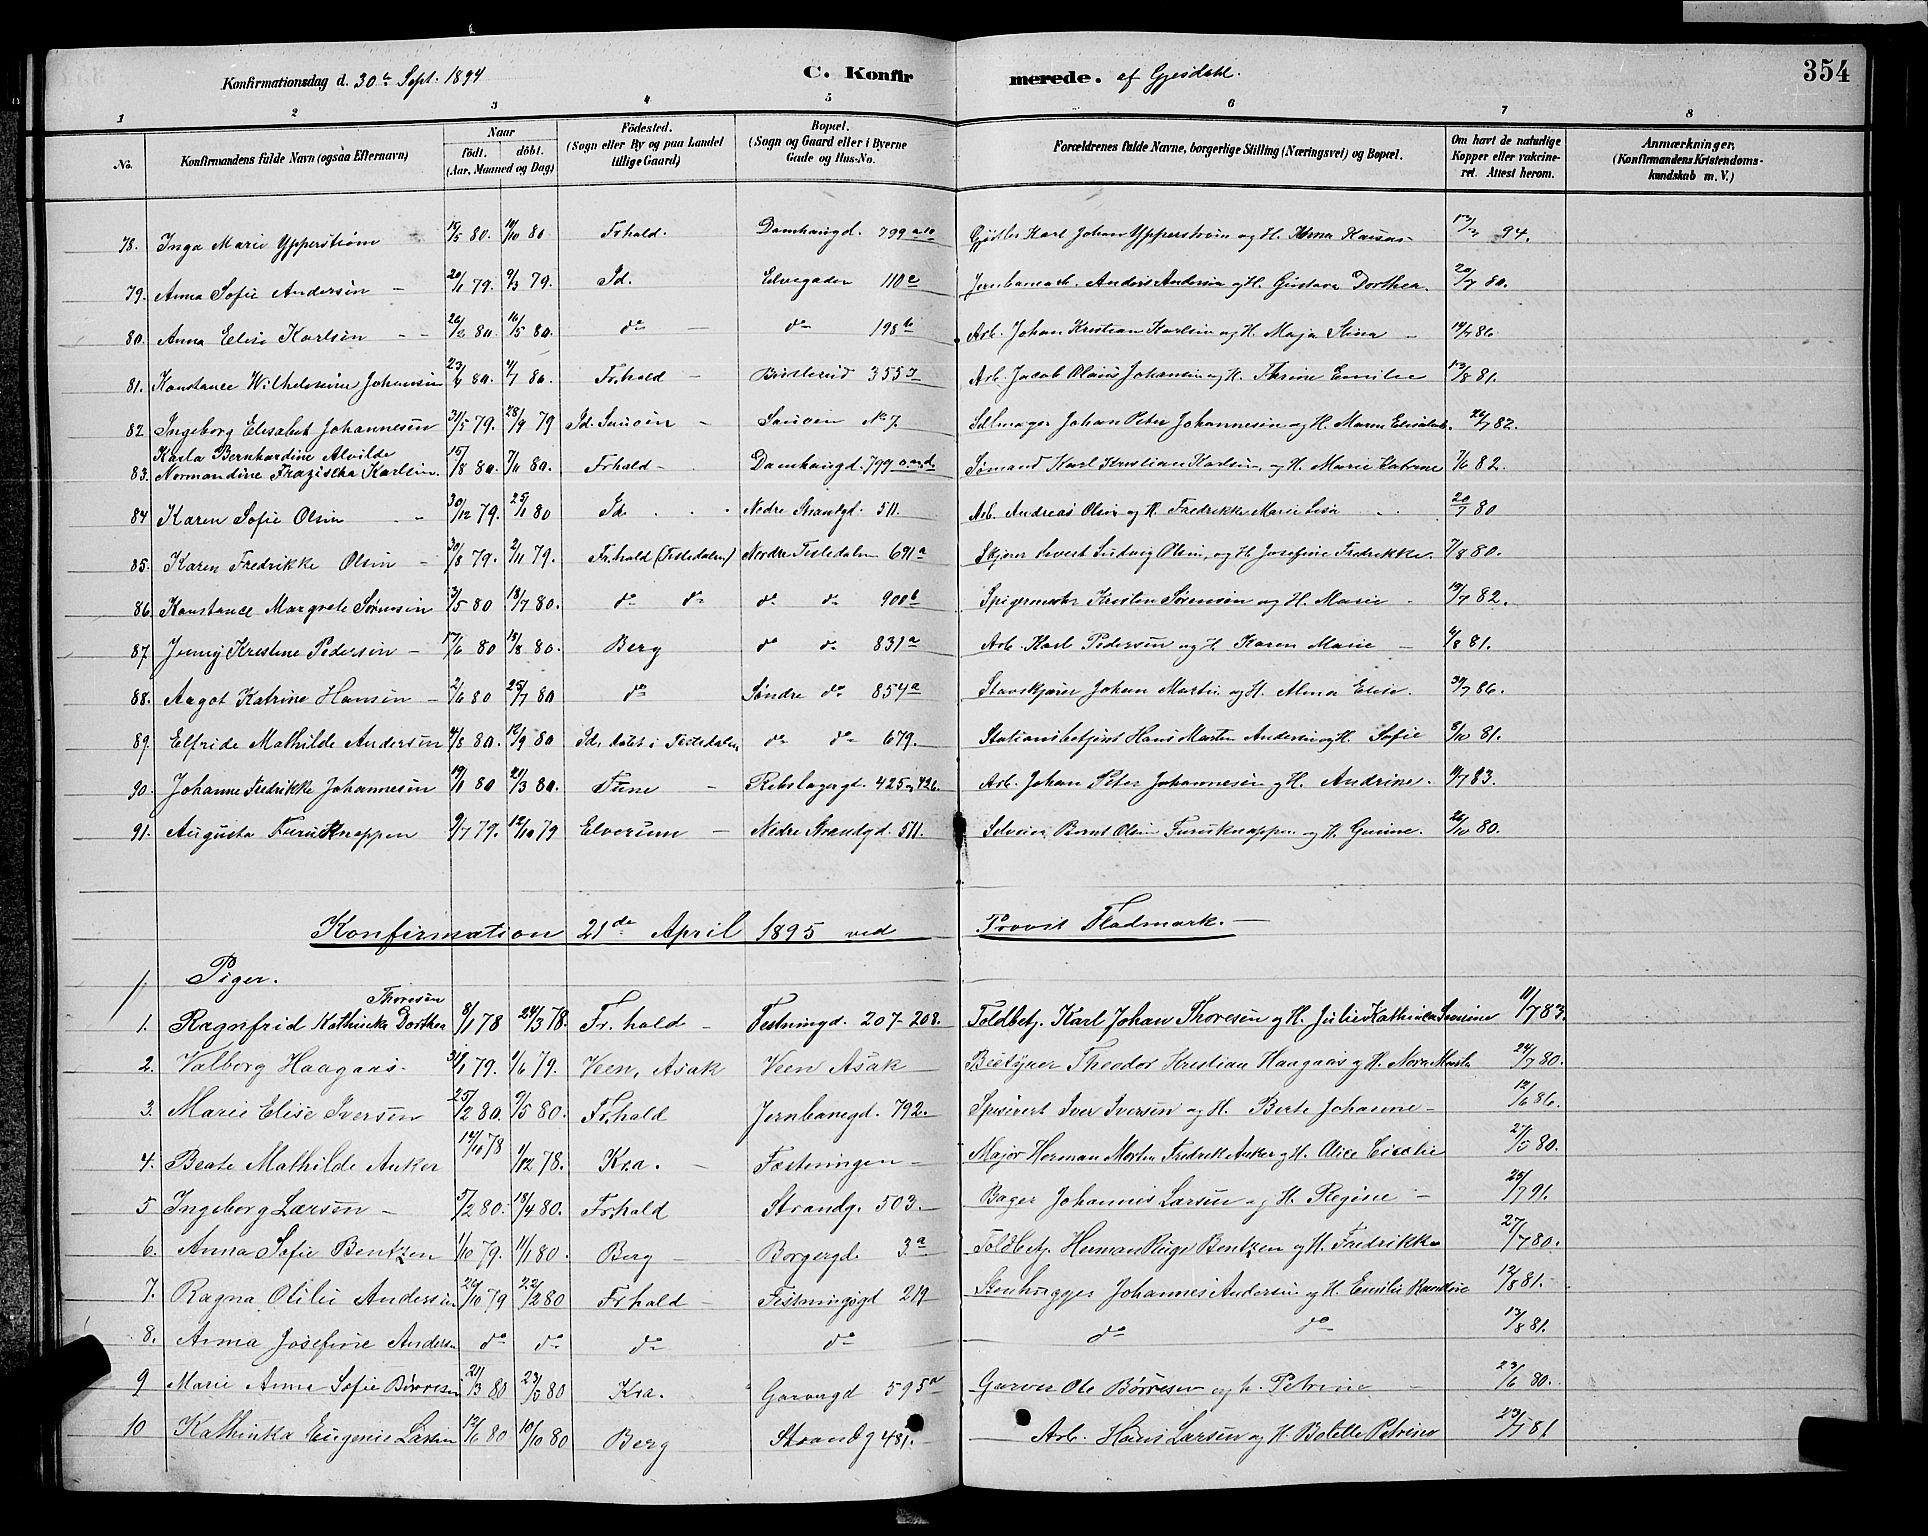 354
Konfirmationsdag d. 30te Sept. 1894 C. Konfirmerede. af Gjesdahl.
1 2 3 4 5 6 7 8
No. Konfirmandens fulde Navn (ogsaa Efternavn) Naar født. døbt. (Aar, Maaned og Dag) Fødested. (Sogn eller By og paa Landet tillige Gaard) Bopæl. (Sogn og Gaard eller i Byerne Gade og Hus-No. Forældrenes fulde Navne, borgerlige Stilling (Næringsvei) og Bopæl. Om havt de naturlige Kopper eller vakcineret. Attest herom. Anmærkninger. (Konfirmandens Kristendomskundskab m. V.)
78. Inga Marie Ypperstrøm 17/5 80. 10/10 80 Frhald. Damhaugd. 799 Karl Johan Ypperstrøm og H. Anna 94.
79. Anna Sofie Andersen 20/1 79. 9/3 79. Id. Elvegaden 110c Jernbanearb. Anders Andersen og H. Gustava Dorthea. 20/7 80.
80. Anna Elise Karlsen 26/2 80. 16/5 80. do do 198b Arb. Johan Kristian Karlsen og H. Maja Stina 14/7 86
81. Konstance Wilhelmine Johansen 23/6 80. 4/7 80. Frhald 355 Arb. Jacob Olaus Johansen og H. Thrine Emilie 13/8 81.
82. Ingeborg Elisabet Johannesen 31/5 79. 28/9 79 Id. Sauøen Sauøen No 7. Johan Peter Johannesen og H. Maren Elisabet 26/7 82.
83. Karla Bernhardine Alvilde Normandine Fraziska Karlsen. 15/8 80. 7/11 80. Frhald Damhaugd. 799 Sømand Karl Kristian Karlsen og H. Marie Katrine 7/6 82.
84 Karen Sofie Olsen 30/12 79. 25/1 80 Id. Nedre Strandgd. 511. Arb. Andreas Olsen og H. Fredrikke Marie Lisa 20/7 80
85. Karen Fredrikke Olsen 30/8 79. 2/11 79. Fr.hald (Tistedalen) Nordre Tistedalen 691a Skjører Severt Ludvig Olsen og H. Josefine Fredrikke. 7/8 80.
86. Konstance Margrete Sørensen 3/5 80 18/7 80. do do do do 900b Kristen Sørensen og H. Marie 19/7 82.
87. Jenny Kristine Pedersen 17/6 80 15/8 80. Berg do do 831a Arb. Karl Pedersen og H. Karen Marie 6/8 81.
88. Aagot Katrine Hansen 2/6 80 25/7 80 do Søndre do 854a Stavskjører Johan Martin og H. Alma Elise. 30/7 86.
89. Elfride Mathilde Andersen 4/8 80. 12/9 80 Id. døbt i Tistedalen do do 679. Stationsbetjent Hans Martin Andersen og H. Sofie 8/10 81.
90. Johanne Fredrikke Johannesen 19/1 80 21/3 80. Tune Rebslagergt. 425 og 426. Arb. Johan Peter Johannesen og H. Andrine. 11/7 83.
91. Augusta Furuknappen 9/7 79. 12/10 79 Elverum Nedre Strandgd. 511. Bernt Olsen Furuknappen og H. Gunine. 26/10 80.
Konfirmation 21de April 1895 ved Provst Fladmark.
Piger.
1. Ragnfrid Kathinka Dorthea Thoresen 8/1 78 24/3 78. Fr.hald Festningd. 207-208. Toldbetj. Karl Johan Thoresen og H. Julie Kathinka Severine 11/7 83.
2. Valborg Haagaas. 31/1 79. 1/6 79. Veen, Asak Veen Asak Bestyrer Theodor Kristian Haagaas og H. Nora Marth 24/7 80.
3. Marie Elise Iversen 25/2 80. 9/5 80. Frhald Jernbanegd. 792. Spisevert Iver Iversen og H. Berte Johanne 12/6 86.
4. Beate Mathilde Anker 14/10 78 1/12 78. Kra. Fæstningen Major Herman Morten Fredrik Anker og H. Alice Cicelie 27/5 80.
5 Ingeborg Larsen 5/2 80. 18/4 80. Frhald Strandg. 503. Bager Johannis Larsen og H. Regine 25/7 91.
6. Anna Sofie Bentzen 1/10 79. 11/1 80. Berg Borgergd. 3a Toldbetj. Herman Ruge Bentzen og H. Fredrikke 27/7 80.
7. Ragna Otilie Andersen 26/10 79 22/2 80 Frhald Festningsgd 219 Stenhugger Johannes Andersen og H. Emilie Karoline 12/8 81.
8. Anna Josefine Andersen do do do do do do 13/8 81.
9 Marie Anna Sofie Børresen 21/3 80 23/5 80 Kra. Garvergd 595a Garver Ole Børresen og h. Petrine 23/6 80.
10 Kathinka Eugenie Larsen 12/6 80 10/10 80 Berg Strandg 481. Arb. Hans Larsen og H. Bolette Petrine 23/7 81